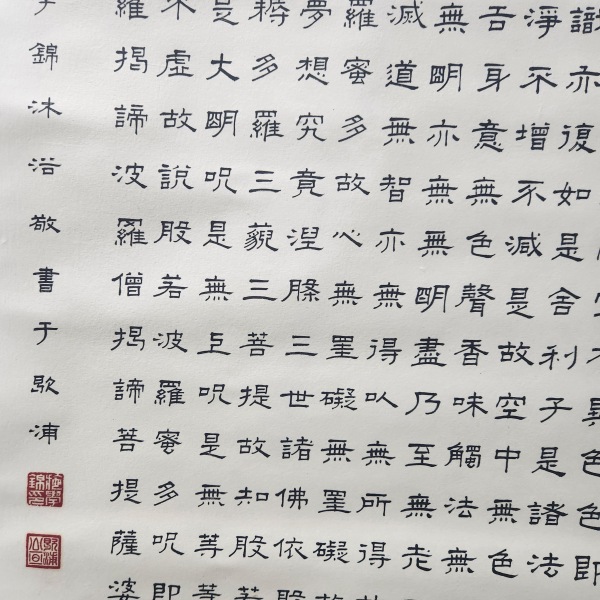 不異色色即
識亦復如是舍利子是諸法
淨不增不減是故空中無色
舌身意無色聲香味觸法無
無明亦無無明盡乃至無老
滅道無智亦無得以無所得
羅蜜多故心無罣礙無罣礙
夢想究竟涅槃三世諸佛依般
耨多羅三藐三菩提故知般若
是大明咒是無上咒是無等等
不虛故說般若波羅蜜多咒即
羅揭諦波羅僧揭諦菩提薩婆
錦沐浴敬書于歇浦